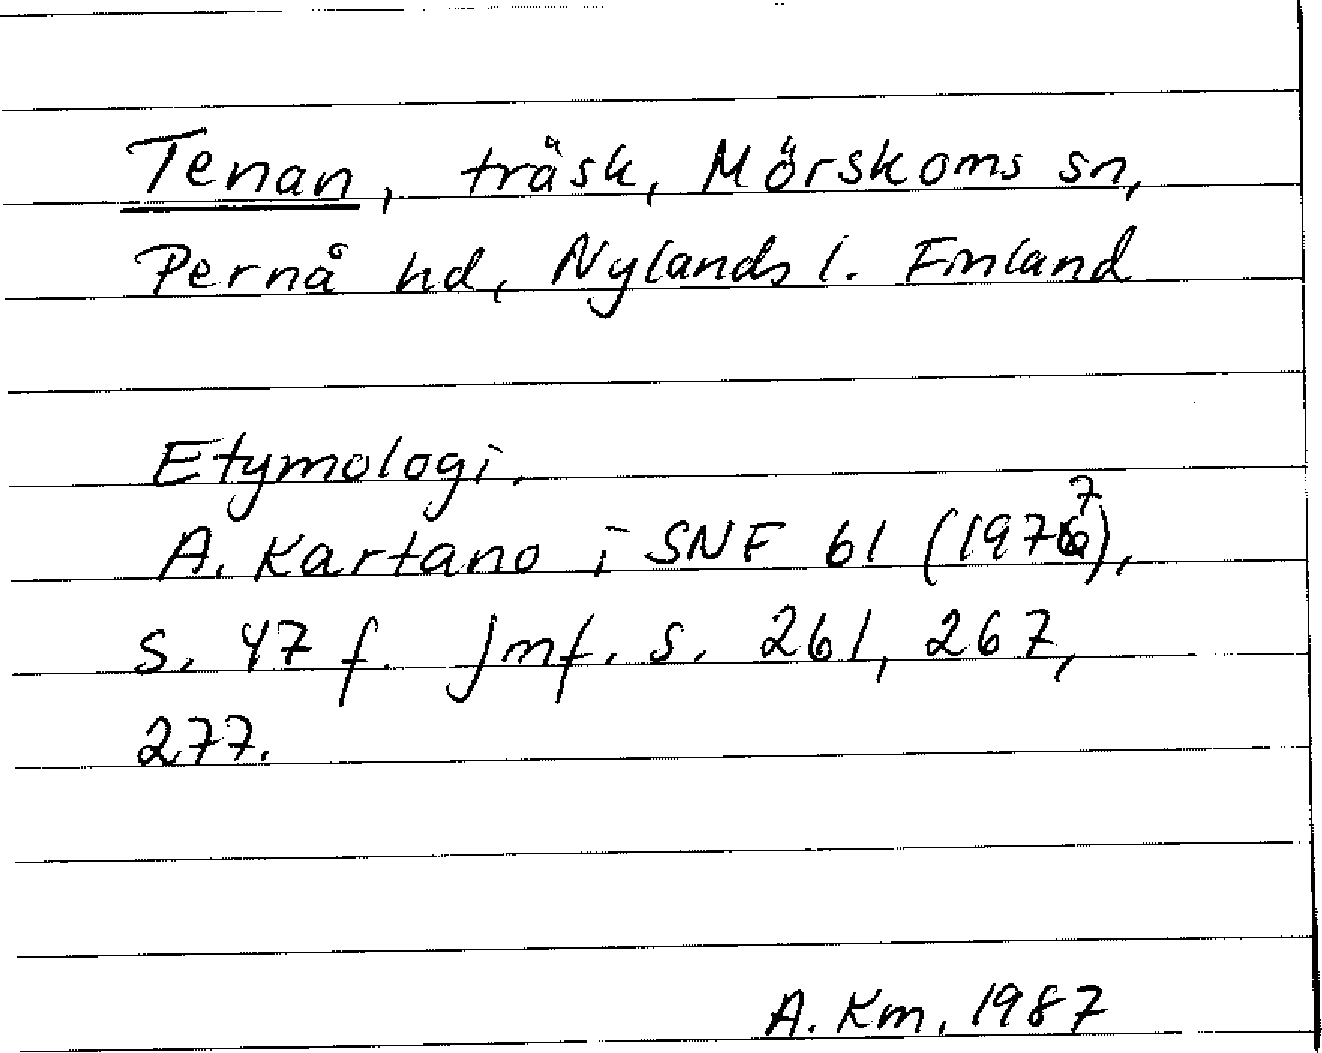 Tenan, träsk, Mörskoms sn,
Pernå hd, Nylands l. Finland
Etymologi.
A. Kartano i SNF 61 (1977),
s. 47 f. Jmf. s. 261, 267,
277.
A. Km. 1987